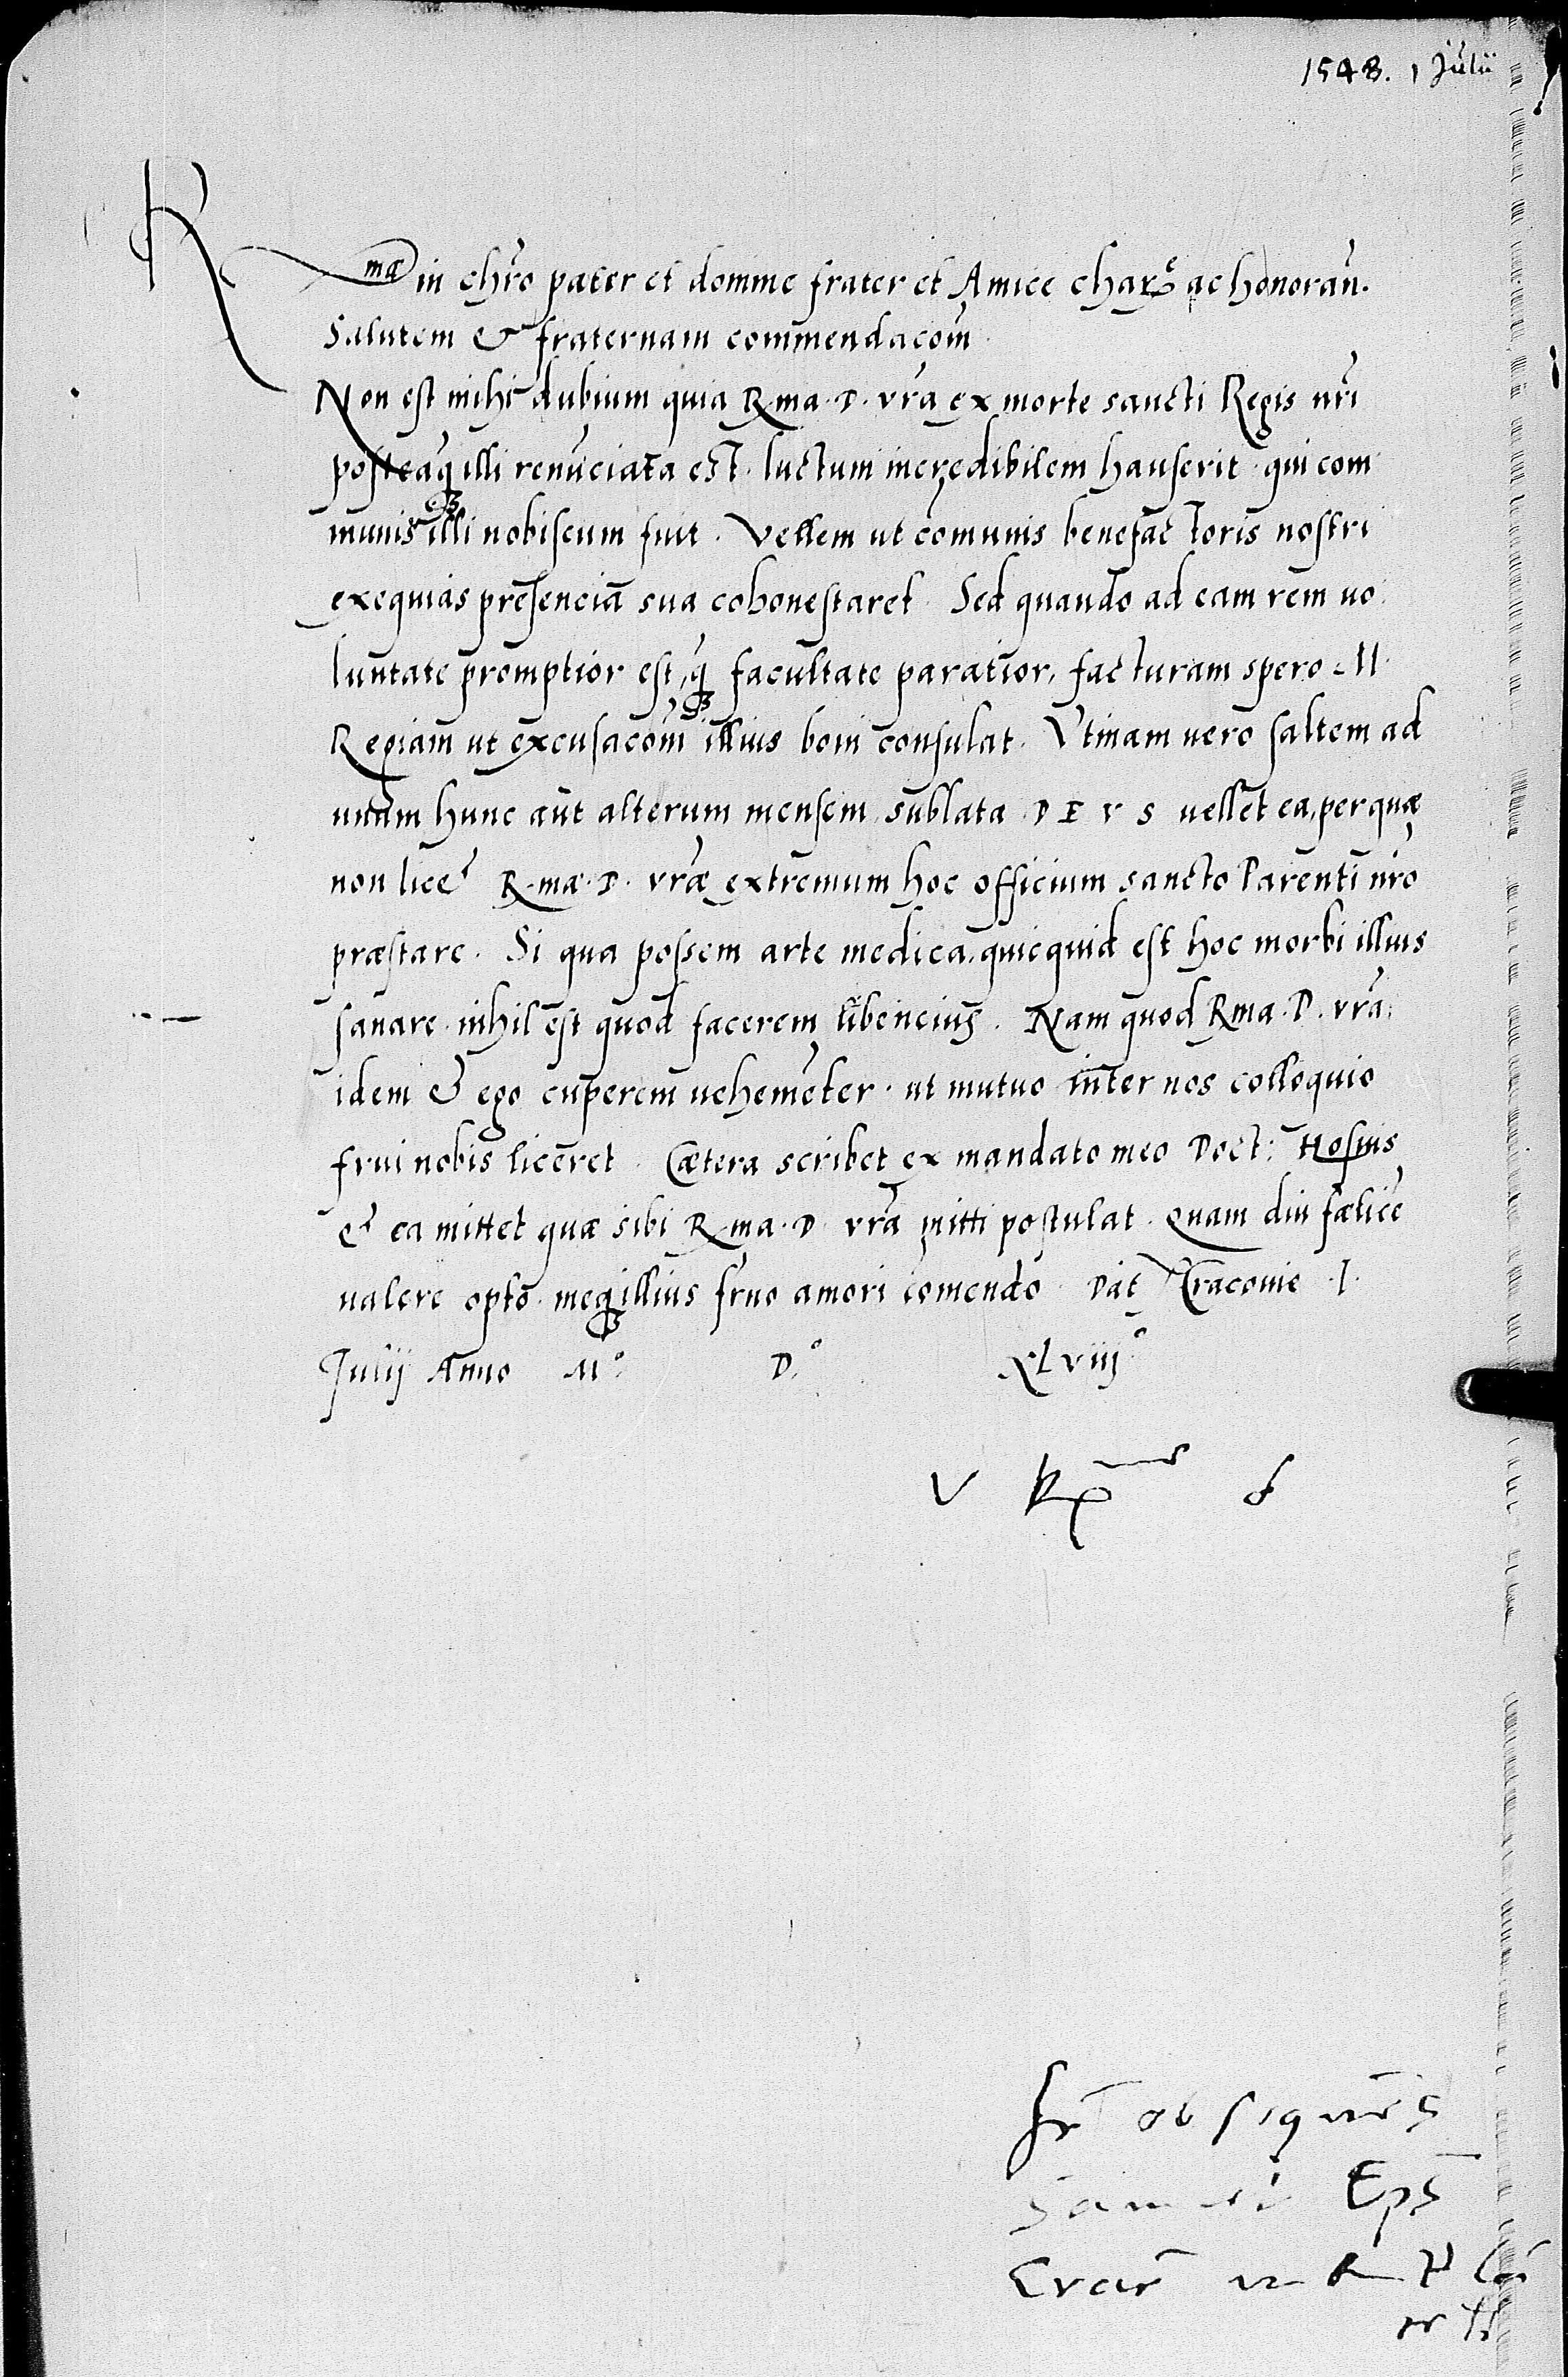 1548. 1 Julii
Rma in chro pater et domine frater et Amice chare ac honoran.
Salutem & fraternam commendacom
Non est mihi dubium quin Rma. D. vra ex morte sancti Regis nri
posteaq illi renunciata est. luctum incredibilem hauserit. qui com
munisq illi nobiscum fuit. Vellem ut comunis benefactoris nostri
exequias presencia sua cohonestaret. Sed quando ad eam rem uo
luntate promptior est, q facultate paratior, facturam spero M.
Regiam ut excusacom illius boni consulat. Vtinam vero saltem ad
unum hunc aut alterum mensem sublata DEVS vellet ea, per quæ
non licet Rmæ. D. vræ extremum hoc officium sancto Parenti nro
præstare. Si qua possem arte medica, quicquid est hoc morbi illius
sanare. nihil est quod facerem libencius. Nam quod Rma. D. vra
idem & ego cuperem uehementer. ut mutuo inter nos colloquio
frui nobis liceret. Cætera scribet ex mandato meo Doct: Hosius
& ea mittet quæ sibi Rma. D. vra mitti postulat. Quam diu fælicē
valere opto. meq illius frno amori comendo. Dat Cracovie .I.
Julij Anno M° D.° XLviij°
V R D
Fr obsequens
Samuel Eps
Craco